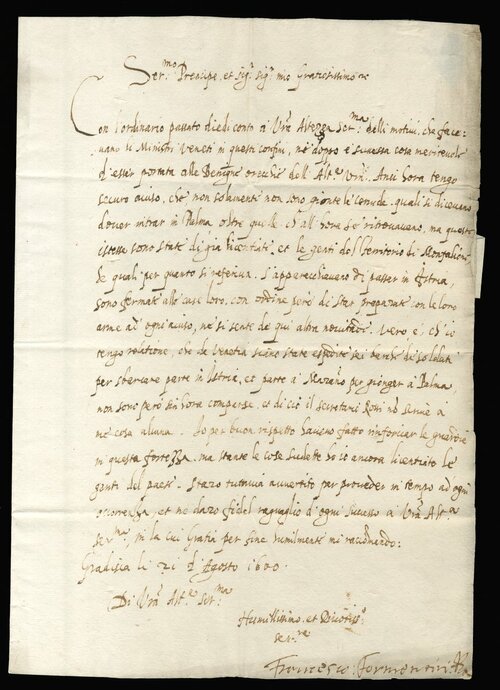 Ser.mo Prencipe, et sig.r sig.r mio Gratiosissimo
Con l'ordinario passato diedi conto a Vra Altezza Ser.ma delli motivi, che face-
vano li Ministri Veneti in questi confini, ne dopò è successa cosa meritevole
d'esser portata alle Benigne orecchie dell'Alt.a Vra. Anzi hora tengo
securo aviso, che non solamente non sono gionte le cernede quali si dicevano
dover intrar in Palma oltre quelle ch'all'hora se ritrovavano, ma queste
istesse sono state di già licentiate, et le genti del Territorio di Monfalcon
de quali per quanto si referiva s'apparecchiavano di passar in Istria,
sono fermate alle case loro, con ordine però di star preparate con le loro
arme ad ogni aviso, ne si sente de qui altra novità. Vero è, ch'io
tengo relatione, che da Venetia siano state espedite sei barche di soldati
per sbarcare parte in Istria, et parte a Marano per gionger a Palma,
non sono però sin hora comparse, et di ciò il secretario non scrive a
me cosa alcuna. Io per buon rispetto havevo fatto rinforzar le guardie
in questa fortezza, ma stante le cose sudette ho io ancora licentiato le
genti del paese. Starò tuttavia avvertito per proveder in tempo ad ogni
occorrenza, et ne darò fidel raguaglio d'ogni sucesso a Vra Alt.a
Ser.ma, in la cui Gratia per fine humilmente mi raccomando.
Gradisca li 21 d'Agosto 1600
Di Vra Alt.a Ser.ma
Humilissimo et Divotiss.o
ser.re
Francesco Formentini